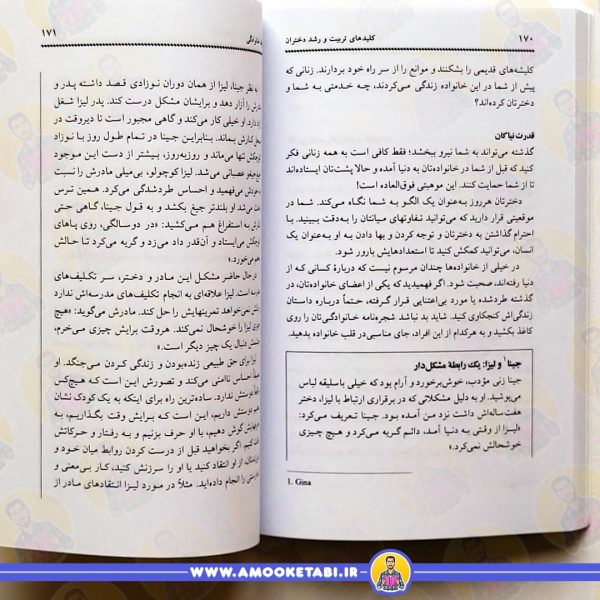 ۱۷۰
کلیدهای تربیت و رشد دختران
کلیشه‌های قدیمی را بشکنند و موانع را از سر راه خود بردارند. زنانی که
پیش از شما در این خانواده زندگی می‌کردند، چه خدمتی به شما و
دخترتان کرده‌اند؟
قدرت نیاکان
گذشته می‌تواند به شما نیرو ببخشد؛ فقط کافی است به همه زنانی فکر
کنید که قبل از شما در خانواده‌تان به دنیا آمده و حالا پشت‌تان ایستاده‌اند
تا از شما حمایت کنند. این موهبتی فوق‌العاده است!
دخترتان هرروز به‌عنوان یک الگو به شما نگاه می‌کند. شما در
موقعیتی قرار دارید که می‌توانید تفاوتهای میانتان را به‌دقت ببینید. با
احترام گذاشتن به دخترتان و توجه کردن و بها دادن به او به‌عنوان یک
انسان، می‌توانید کمکش کنید تا استعدادهایش بارور شود.
در خیلی از خانواده‌ها چندان مرسوم نیست که دربارهٔ کسانی که از
دنیا رفته‌اند، صحبت شود. اگر فهمیدید که یکی از اعضای خانواده‌تان، در
گذشته طردشده یا مورد بی‌اعتنایی قرار گرفته، حتماً درباره داستان
زندگی‌اش کنجکاوی کنید. شاید بد نباشد شجره‌نامه خانوادگی‌تان را روی
کاغذ بکشید و به هرکدام از این افراد، جای مناسبی در قلب خانواده بدهید.
جینا۱ و لیزا: یک رابطهٔ مشکل‌دار
جینا زنی مؤدب، خوش‌برخورد و آرام بود که خیلی باسلیقه لباس
می‌پوشید. او به دلیل مشکلاتی که در برقراری ارتباط با لیزا، دختر
هفت‌ساله‌اش داشت نزد من آمده بود. جینا تعریف می‌کرد:
«لیزا از وقتی به دنیا آمد، دائم گریه می‌کرد و هیچ چیزی
خوشحالش نمی‌کرد.»
1. Gina
۱۷۱
به نظر جینا، لیزا از همان دوران نوزادی قصد داشته پدر و
مادرش را آزار دهد و برایشان مشکل درست کند. پدر لیزا شغل
دارد. او خیلی کار می‌کند و گاهی مجبور است تا دیروقت در
کارش بماند. بنابراین جینا در تمام طول روز با نوزاد
تنها می‌ماند و روزبه‌روز، بیشتر از دست این موجود
عصبانی می‌شد. لیزا کوچولو، بی‌میلی مادرش را
می‌فهمید و احساس طردشدگی می‌کرد. همین ترس
او بلندتر جیغ بکشد و به قول جینا، گاهی حتی
به استفراغ هم می‌کشید: «در دوسالگی، روی پاهای
می‌ایستاد و آن‌قدر داد می‌زد و گریه می‌کرد تا حالش
می‌خورد.»
در حال حاضر مشکل این مادر و دختر، سر تکلیف‌های
مدرسه است. لیزا علاقه‌ای به انجام تکلیف‌های مدرسه‌اش ندارد
نمی‌خواهد تمرینهایش را حل کند. مادرش می‌گوید: «هیچ
را خوشحال نمی‌کند. هروقت برایش چیزی می‌خرم،
دنبال یک چیز دیگر است.»
لیزا برای حق طبیعی زنده‌بودن و زندگی کردن می‌جنگد. او
احساس ناامنی می‌کند و تصورش این است که هیچ‌کس
دوستش ندارد. ساده‌ترین راه برای اینکه به یک کودک نشان
دوستش داریم، این است که برایش وقت بگذاریم، به
گوش دهیم، با او حرف بزنیم و به رفتار و حرکاتش
کنیم. اگر بخواهید قبل از درست کردن روابط میان خود و
از او انتقاد کنید یا او را سرزنش کنید، کار بی‌معنی و
را انجام داده‌اید. مثلاً در مورد لیزا انتقادهای مادر از
WWW.AMOOKETABI.IR